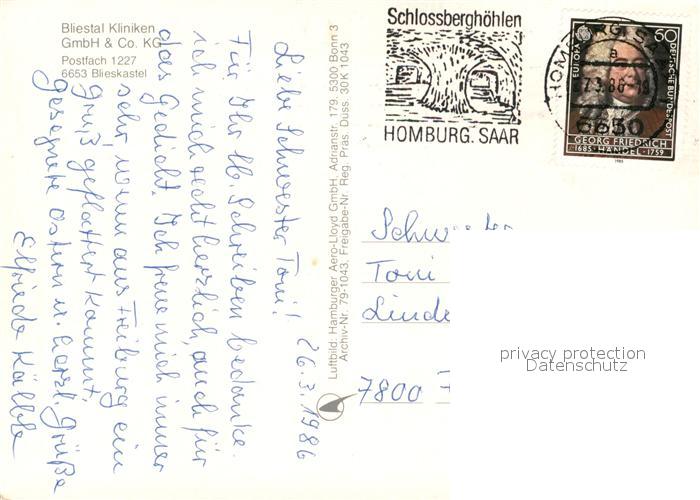 Bliestal Kliniken
GmbH & Co. KG
Postfach 1227
6653 Blieskastel
26.3.1986
Liebe Schwester Toni!
Für Ihr lb. Schreiben bedanke
ich mich recht herzlich, auch für
das Gedicht. Ich freue mich immer
sehr, wenn aus Freiburg ein
Gruß geflattert kommt.
Gesegnete Ostern u. herzl. Grüße
Elfriede
Luftbild: Hamburger Aero-Lloyd GmbH, Adrianstr. 179, 5300 Bonn 3
Archiv-Nr. 79-1043, Freigabe-Nr. Reg. Präs. Düss. 30K 1043
Schlossberghöhlen
HOMBURG. SAAR
HOMBURG, SAAR
a
6650
60
EUROPA
DEUTSCHE BUNDESPOST
GEORG FRIEDRICH
1685 HÄNDEL 1759
1985
Toni
Linde
7800
privacy protection
Datenschutz